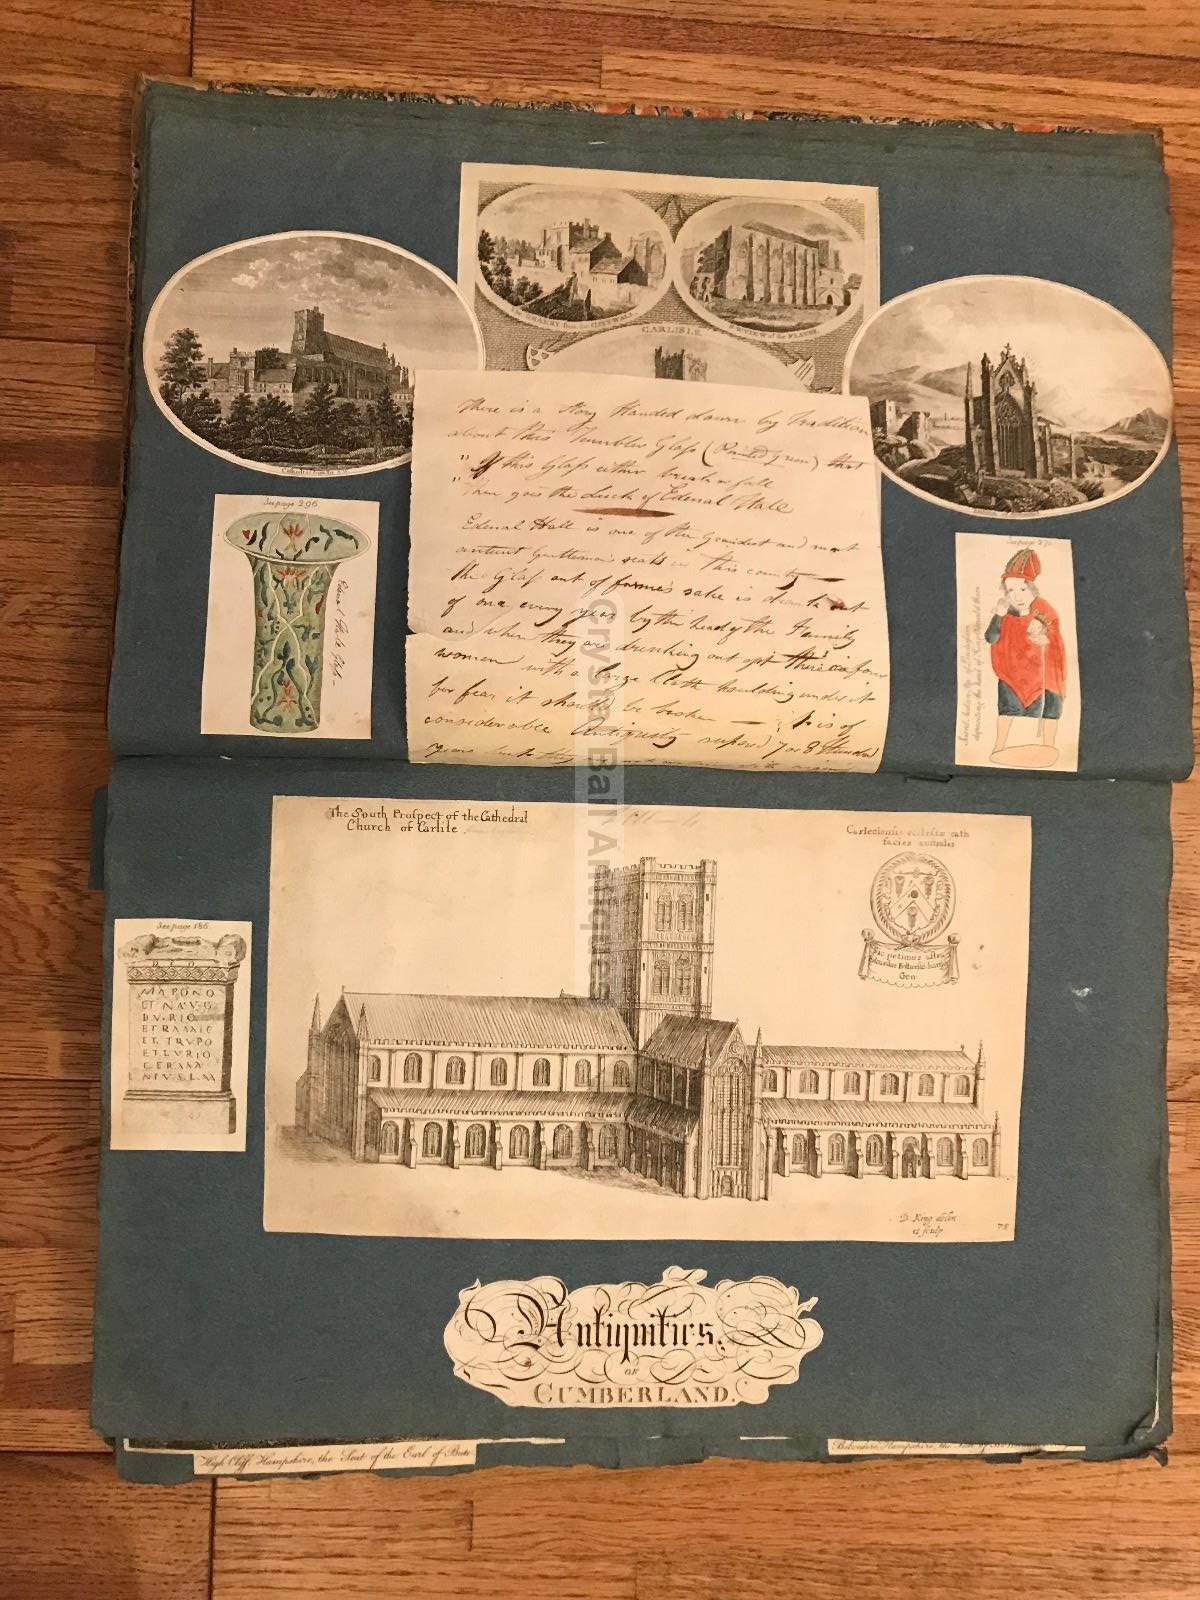 DEANERY from the CITY WALL
S.W. VIEW of the
CARLISLE
Cathedral
There is a Story Handed down by Tradition
about this Tumbler Glass (Painted green) that
" If this Glass either break or fall
" Then goes the Luck of Edenal Hall
Edenal Hall is one of the Grandest and most
antient Gentleman's seats in this county —
this Glass out of fame's sake is drank out
of once every year by the head of the Family
and when they are drinking out of it there is four
women with a large Cloth houlding under it
for fear it should be broken — it is of
considerable Antiquity supos'd 7 or 8 Hundred
years
See page 296
Edenal Halls Glass —
See page
Crystal Ball Antiques
The South Prospect of the Cathedral
Church of Carlile.
Carleolensis ecclesiæ cath
facies australis
Sic petimus astra
Gen
D. King delin
et sculp
78
See page 186
MAPONO
ET N AVG
DVRIO
ET RAMIO
ET TRVPO
ET LVRIO
GERMA
NI V.S.L.M
Antiquities
OF
CUMBERLAND.
High Cliff, Hampshire, the Seat of the Earl of Bute
Belvedere, Hampshire, the